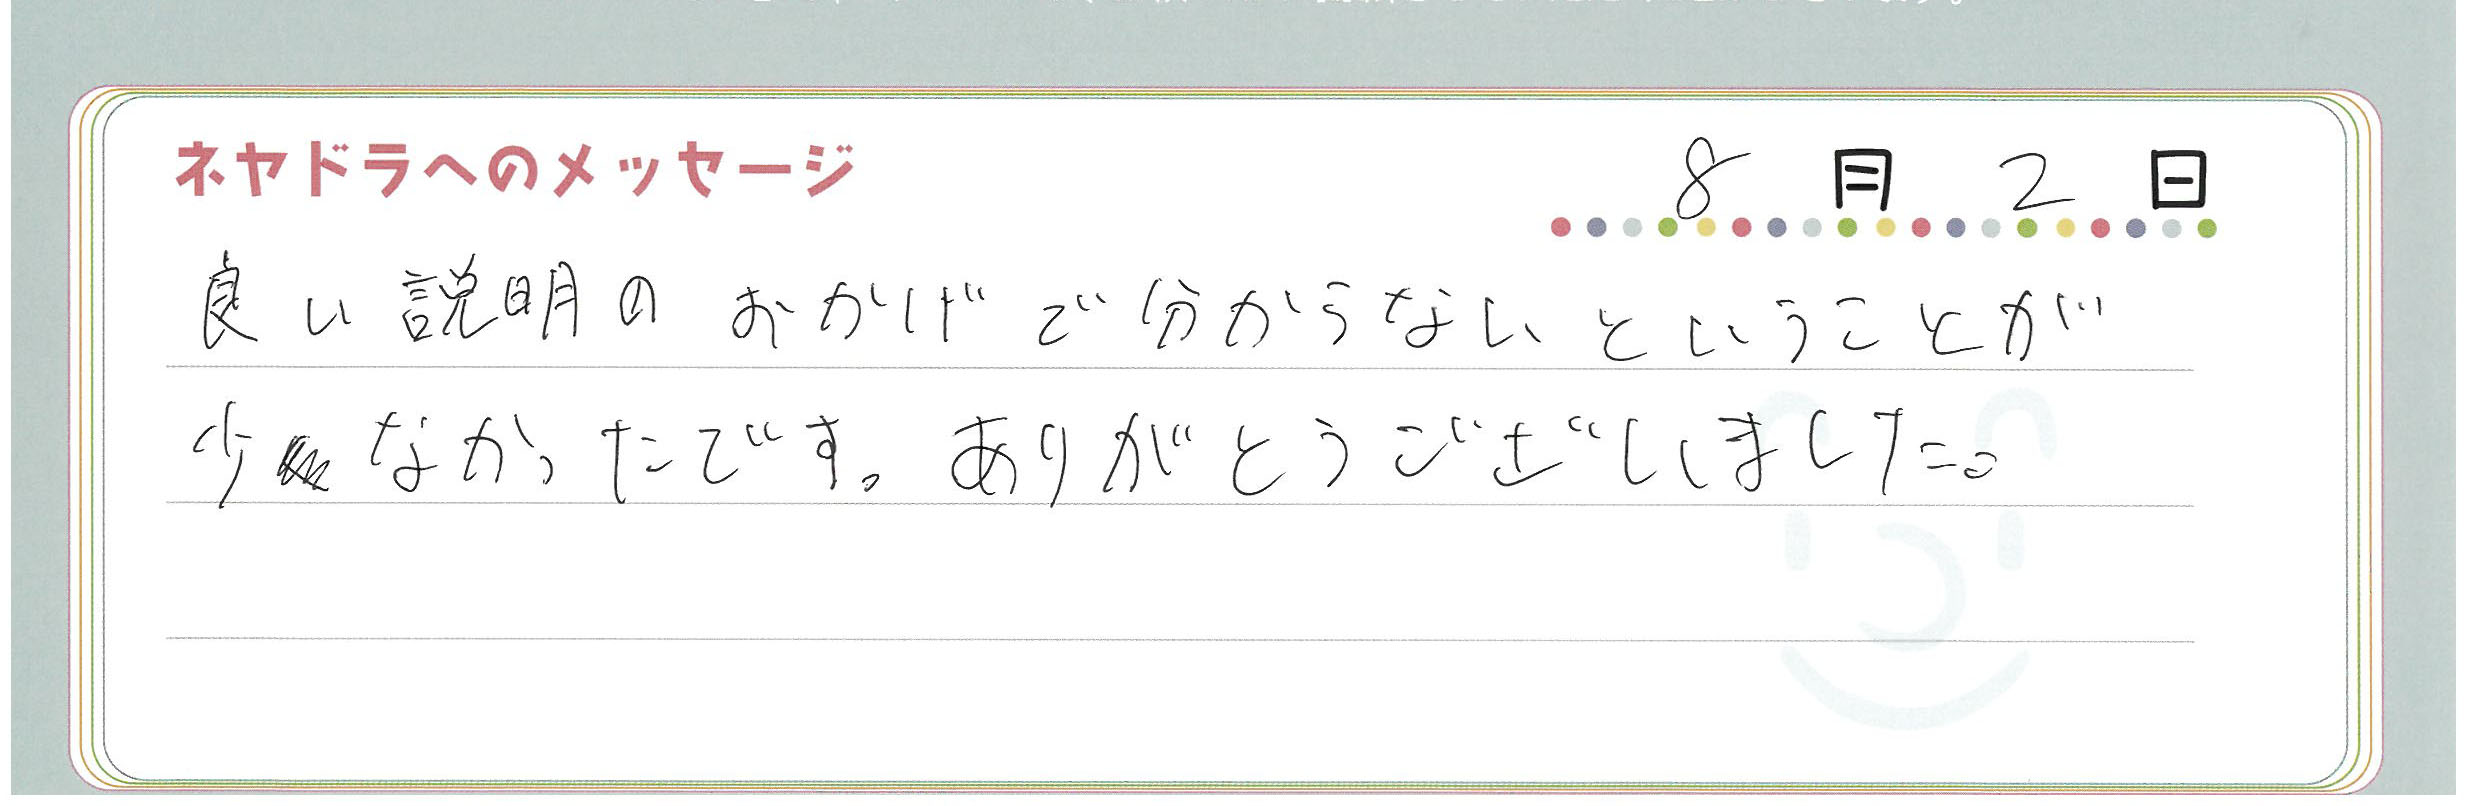 ネヤドラへのメッセージ
8月2日
良い説明のおかげで分からないということが
少なかったです。ありがとうございました。